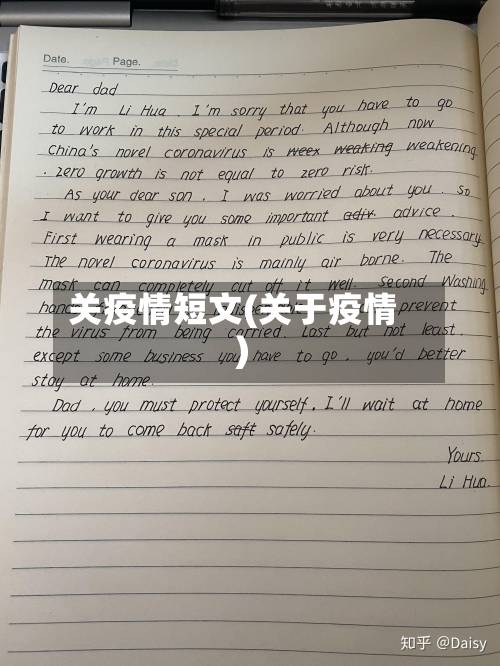 Date.
Page.
Dear dad
I'm Li Hua. I'm sorry that you have to go
to work in this special period. Although now
China's novel coronavirus is weex weaking weakening
. zero growth is not equal to zero risk.
As your dear son, I was worried about you. So
I want to give you some important adiv. advice.
First wearing a mask in public is very necessary
The novel coronavirus is mainly air borne. The
mask can completely cut off it well. Second Washing
hand
prevent
关疫情短文(关于疫情
)
the virus from being carried. Last but not least,
except some business you have to go, you'd better
stay at home.
Dad, you must protect yourself, I'll wait at home
for you to come back saft safely.
Yours.
Li Hua.
知乎 @Daisy